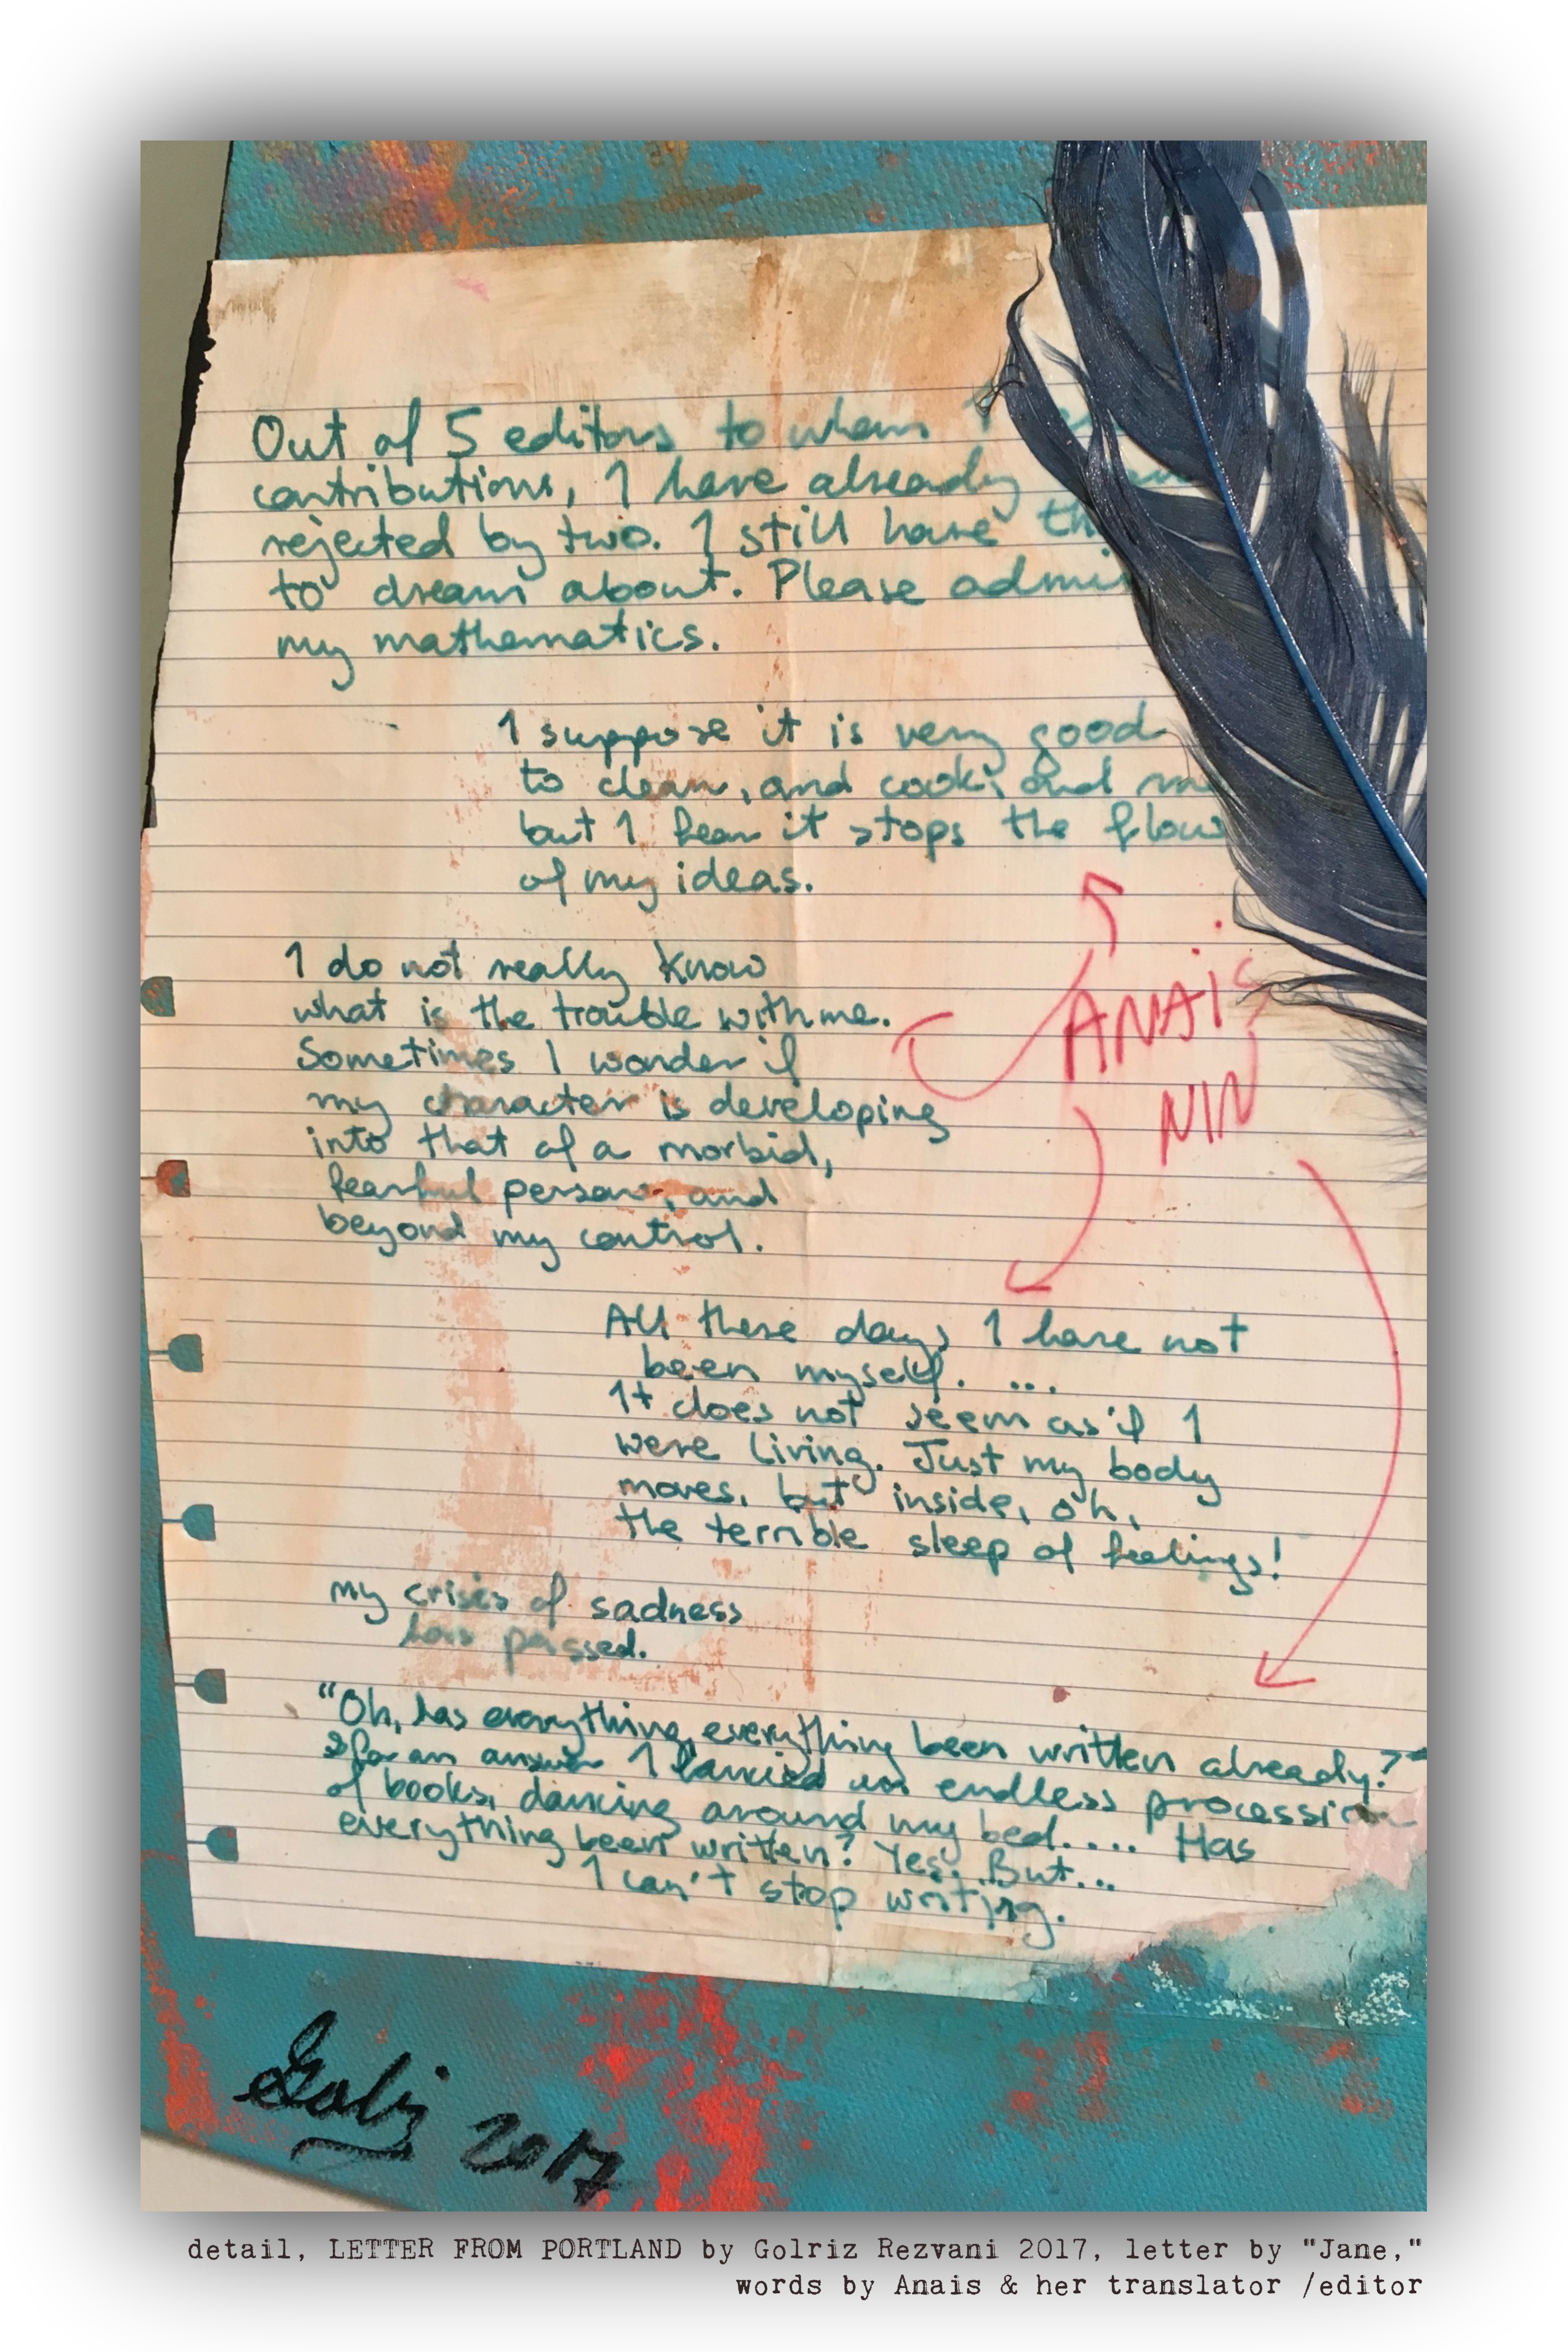 Out of 5 editors to whom I
contributions, I have already
rejected by two. I still have th
to dream about. Please admi
my mathematics.
I suppose it is very good
to clean, and cook, and
but I fear it stops the flow
of my ideas.
ANAIS
NIN
I do not really know
what is the trouble with me.
Sometimes I wonder if
my character is developing
into that of a morbid,
fearful person, and
beyond my control.
All these days I have not
been myself. ...
It does not seem as if I
were living. Just my body
moves, but inside, oh,
the terrible sleep of feelings!
my crisis of sadness
has passed.
"Oh, has everything, everything been written already?"
& for an answer I fancied an endless procession
of books, dancing around my bed.... Has
everything been written? Yes. But...
I can't stop writing.
Golriz 2017
detail, LETTER FROM PORTLAND by Golriz Rezvani 2017, letter by "Jane,"
words by Anais & her translator /editor